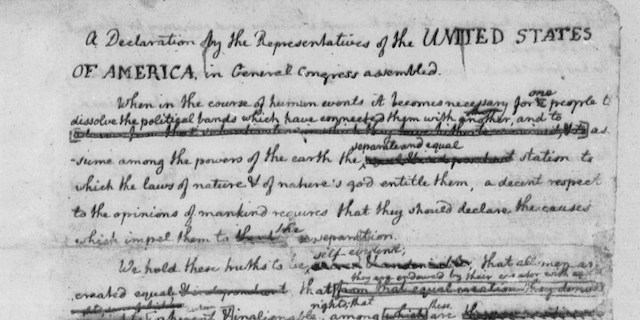 A Declaration by the Representatives of the UNITED STATES
OF AMERICA, in General Congress assembled.
When in the course of human events it becomes necessary for one people to
dissolve the political bands which have connected them with another, and to
as
-sume among the powers of the earth the separate and equal station to
which the laws of nature & of nature's god entitle them, a decent respect
to the opinions of mankind requires that they should declare the causes
which impel them to the separation.
We hold these truths to be self-evident, that all men are
created equal & independent that they are endowed by their creator with
from that equal creation they derive
rights; that these
inherent & inalienable among which are